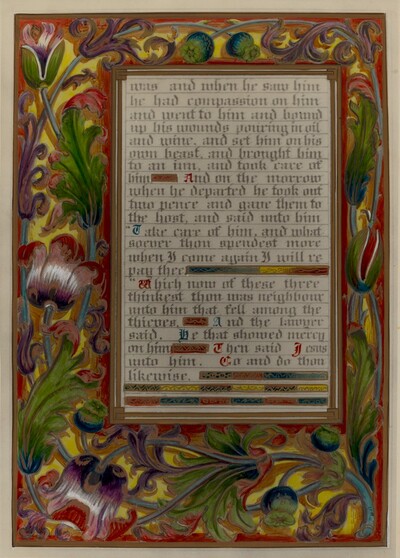 was and when he saw him
he had compassion on him
and went to him and bound
up his wounds pouring in oil
and wine, and set him on his
own beast, and brought him
to an inn, and took care of
him And on the morrow
when he departed he took out
two pence and gave them to
the host, and said unto him
"Take care of him, and what
soever thou spendest more
when I come again I will re
pay thee
"Which now of these three
thinkest thou was neighbour
unto him that fell among the
thieves. And the lawyer
said, He that showed mercy
on him Then said Jesus
unto him. Go and do thou
likewise.